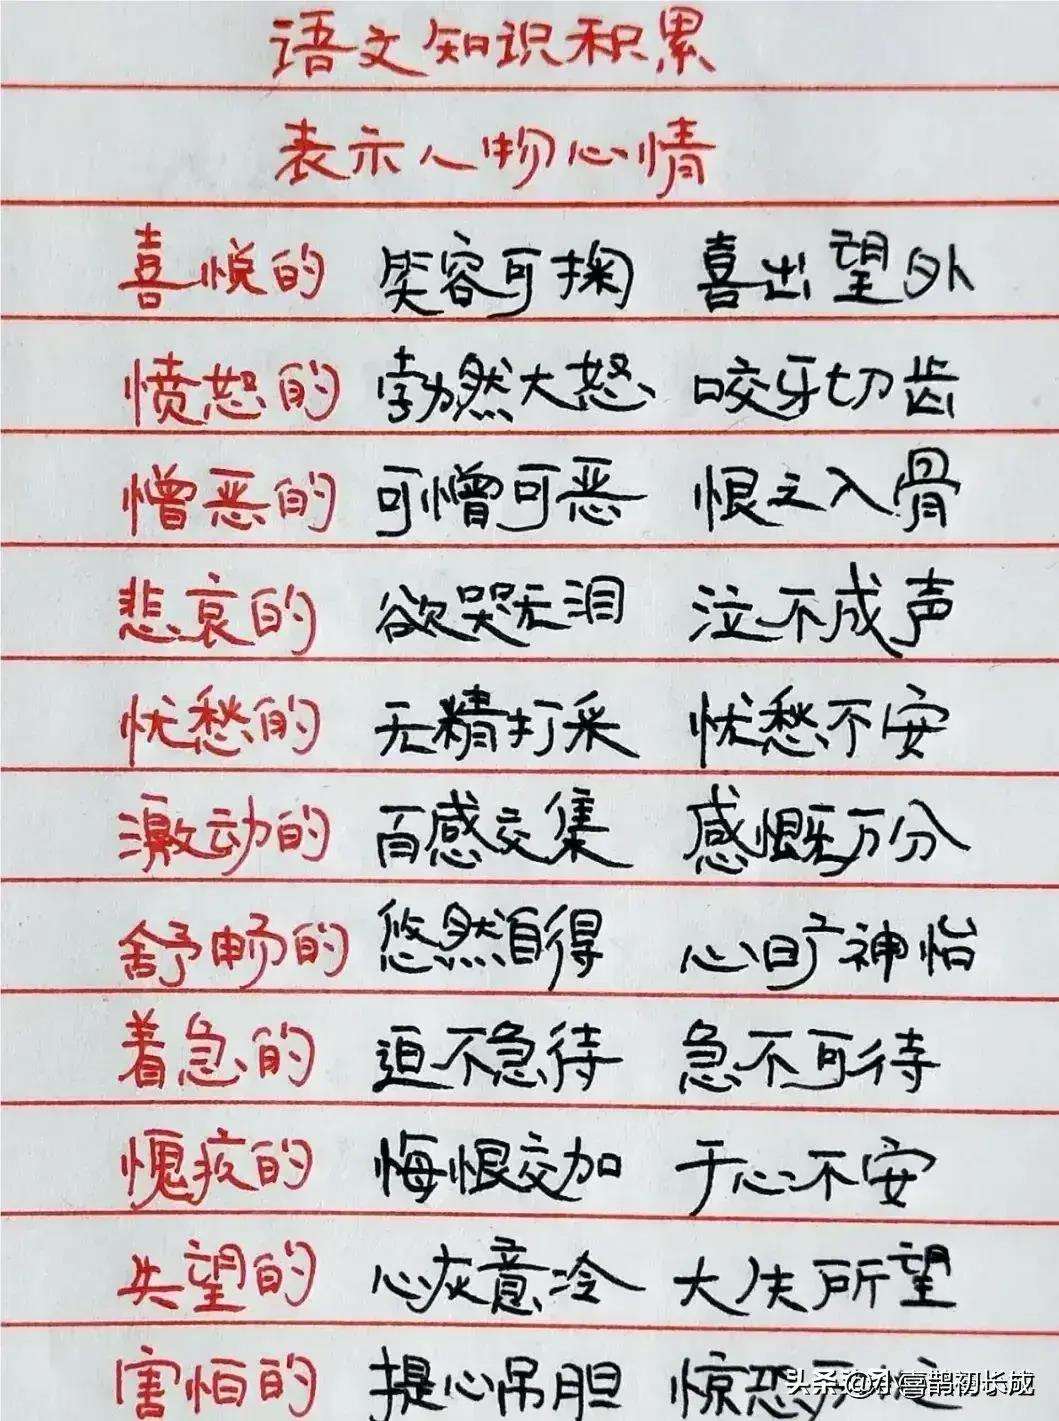 语文知识积累
表示人物心情
喜悦的 笑容可掬 喜出望外
愤怒的 勃然大怒 咬牙切齿
憎恶的 可憎可恶 恨之入骨
悲哀的 欲哭无泪 泣不成声
忧愁的 无精打采 忧愁不安
激动的 百感交集 感慨万分
舒畅的 悠然自得 心旷神怡
着急的 迫不急待 急不可待
愧疚的 悔恨交加 于心不安
失望的 心灰意冷 大失所望
害怕的 提心吊胆 惊恐
头条 @小喜鹊初长成